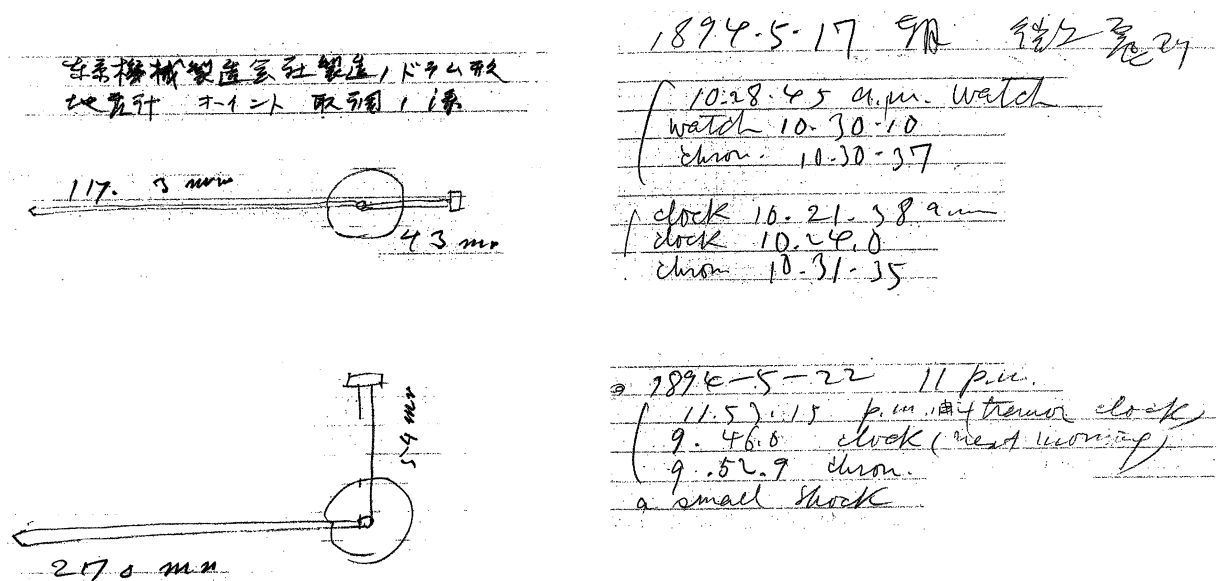 東京機械製造会社製造ノドラム形
地震計 ホイント 取調ノ係
117.3 mm
43 mm
54 mm
270 mm
1894.5.17
10.28.45 a.m. watch
watch 10-30-10
chron. 10-30-37
clock 10.21.38 a.m
clock 10.24.0
chron 10-31-35
1894-5-22 11 p.m.
p.m. tremor clock
9.46.0 clock (next morning)
9.52.9 chron.
a small shock